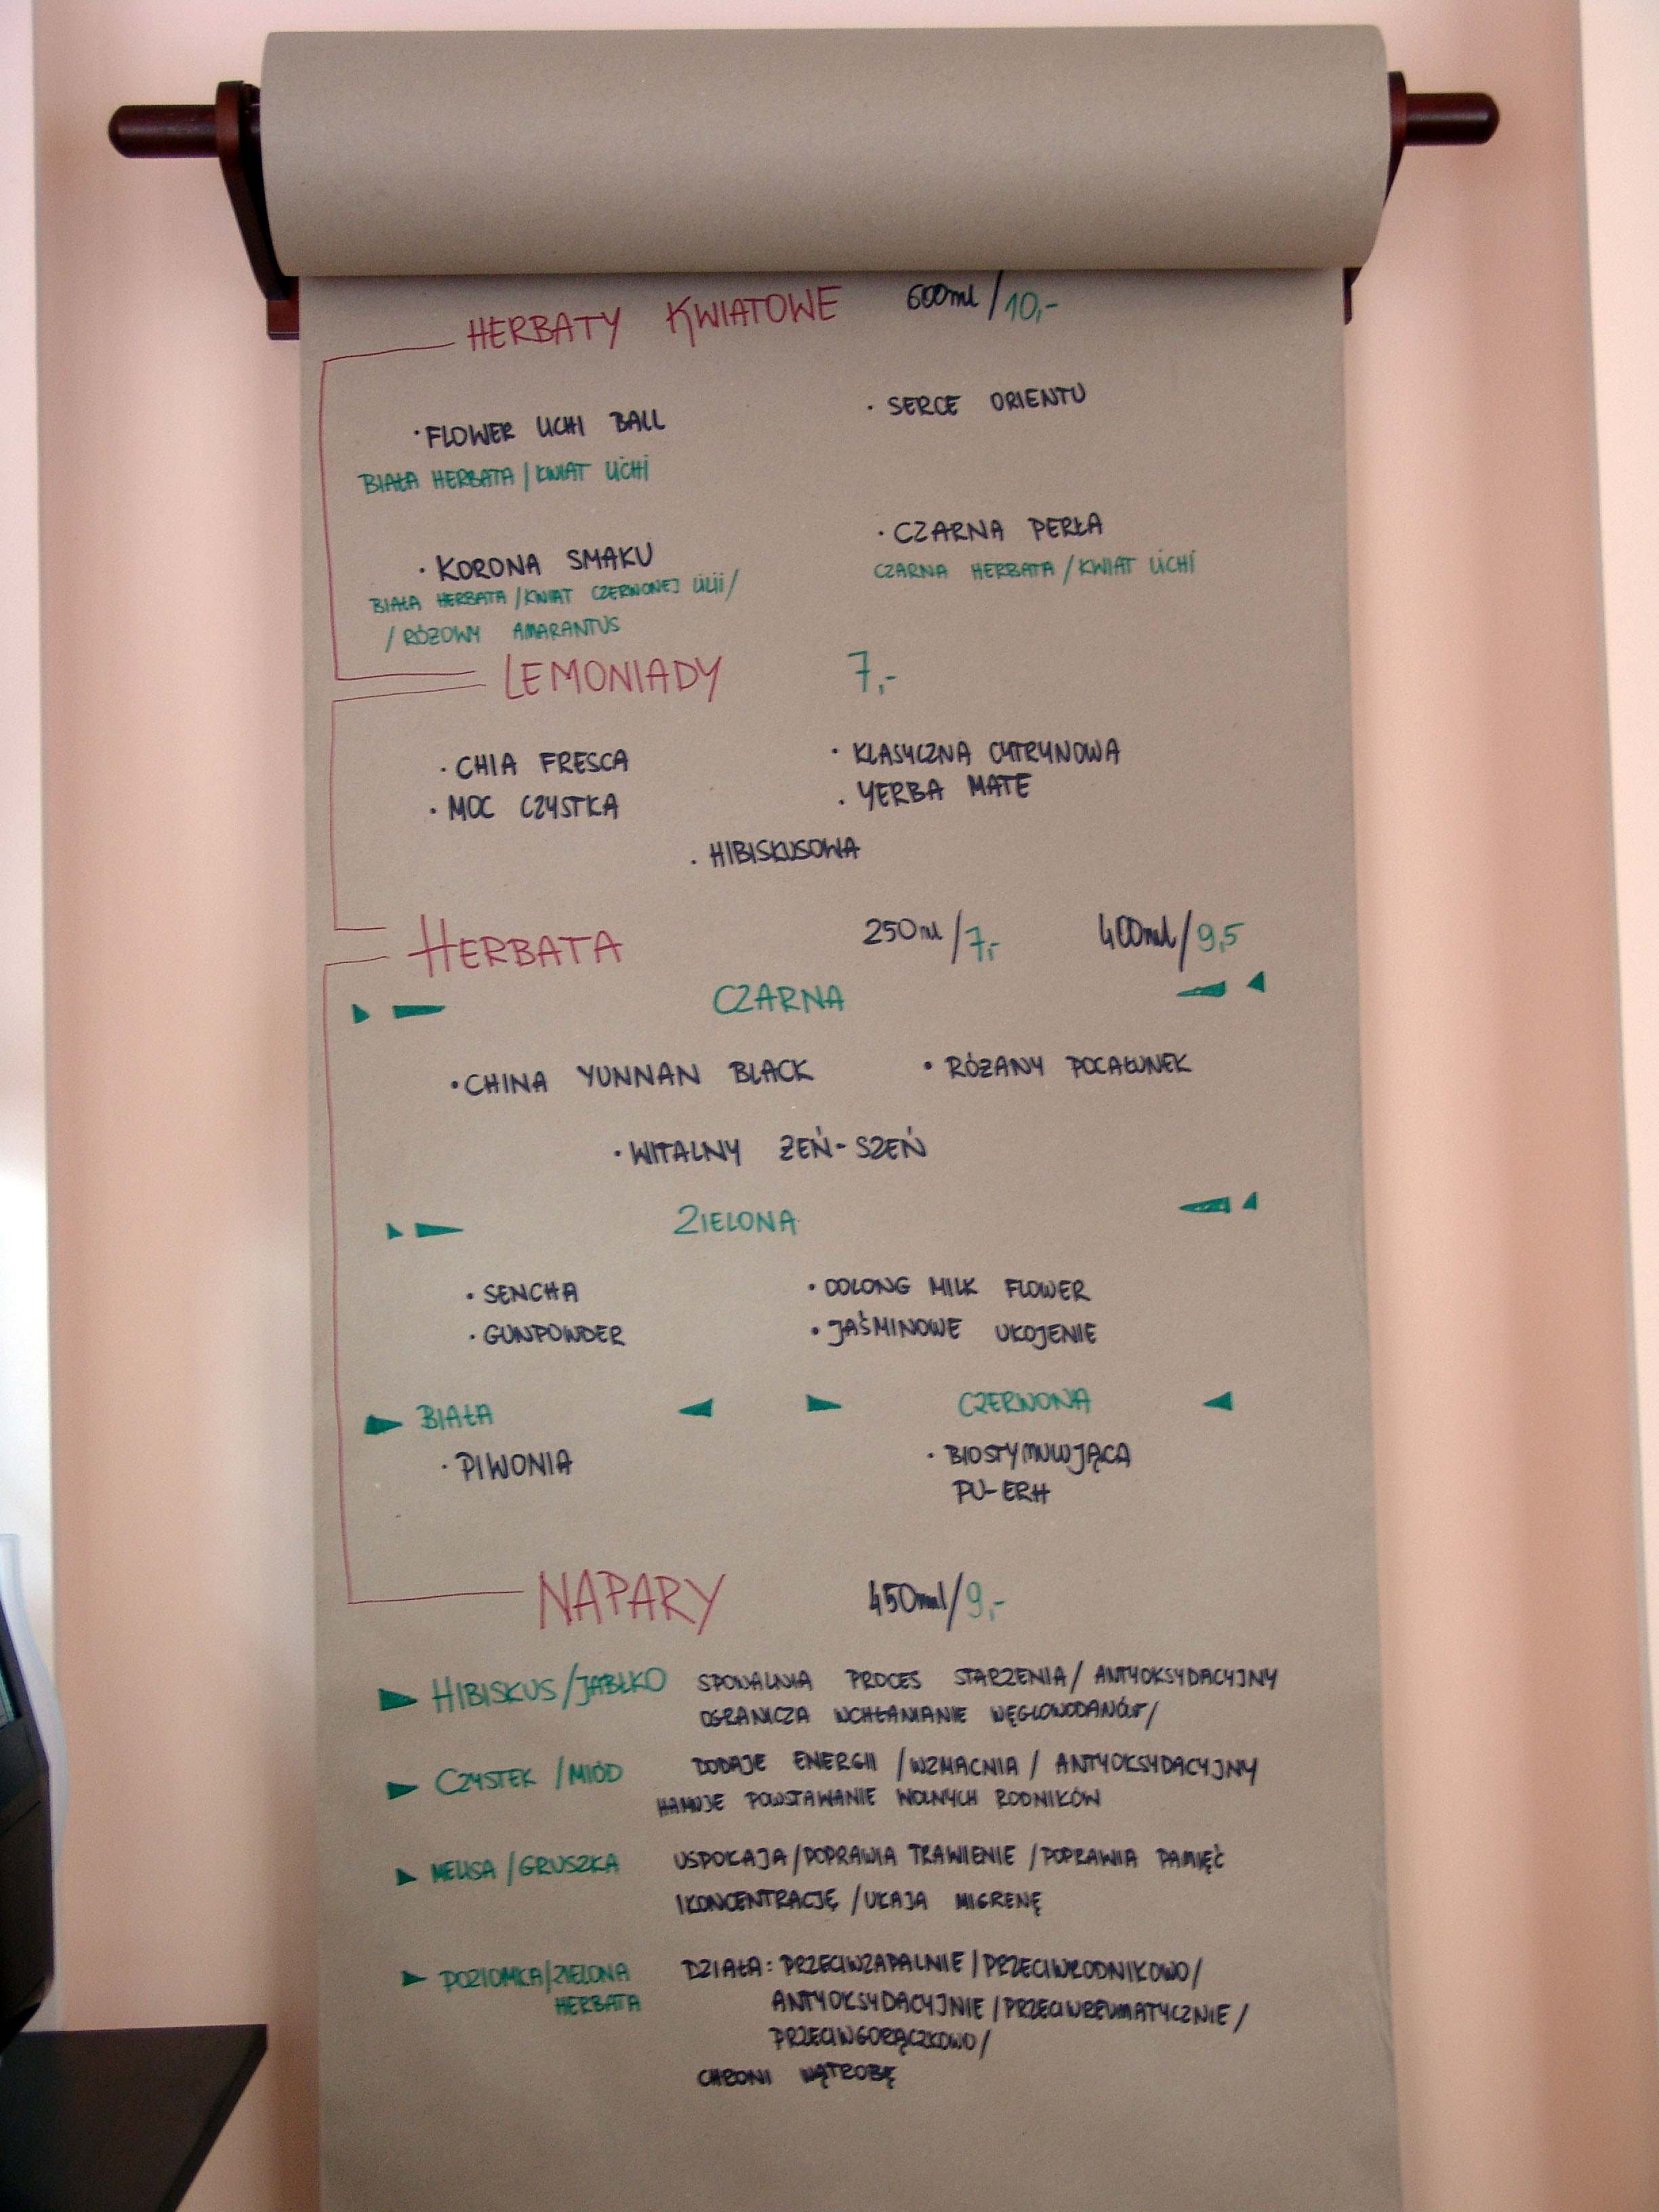 HERBATY KWIATOWE 600ml/10,-
· FLOWER LICHI BALL
BIAŁA HERBATA/KWIAT LICHI
· SERCE ORIENTU
· KORONA SMAKU
BIAŁA HERBATA/KWIAT CZERWONEJ LILII/
/RÓŻOWY AMARANTUS
· CZARNA PERŁA
CZARNA HERBATA/KWIAT LICHI
LEMONIADY 7,-
· CHIA FRESCA
· MOC CZYSTKA
· KLASYCZNA CYTRYNOWA
· YERBA MATE
· HIBISKUSOWA
HERBATA 250ml/7,- 400ml/9,5
CZARNA
· CHINA YUNNAN BLACK
· RÓŻANY POCAŁUNEK
· WITALNY ŻEŃ-SZEŃ
ZIELONA
· SENCHA
· GUNPOWDER
· OOLONG MILK FLOWER
· JAŚMINOWE UKOJENIE
BIAŁA
· PIWONIA
CZERWONA
· BIOSTYMULUJĄCA
PU-ERH
NAPARY 450ml/9,-
HIBISKUS/JABŁKO SPOWALNIA PROCES STARZENIA/ANTYOKSYDACYJNY
OGRANICZA WCHŁANIANIE WĘGLOWODANÓW/
CZYSTEK/MIÓD DODAJE ENERGII/WZMACNIA/ANTYOKSYDACYJNY
HAMUJE POWSTAWANIE WOLNYCH RODNIKÓW
MELISA/GRUSZKA USPOKAJA/POPRAWIA TRAWIENIE/POPRAWIA PAMIĘĆ
I KONCENTRACJĘ/UKAJA MIGRENĘ
POZIOMKA/ZIELONA
HERBATA
DZIAŁA: PRZECIWZAPALNIE/PRZECIWRODNIKOWO/
ANTYOKSYDACYJNIE/PRZECIWREUMATYCZNIE/
PRZECIWGORĄCZKOWO/
CHRONI WĄTROBĘ